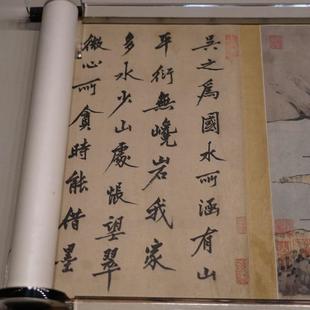 吳之爲國水所涵有山
平衍無巉岩我家
多水少山處悵望翠
微心所貪時能借墨